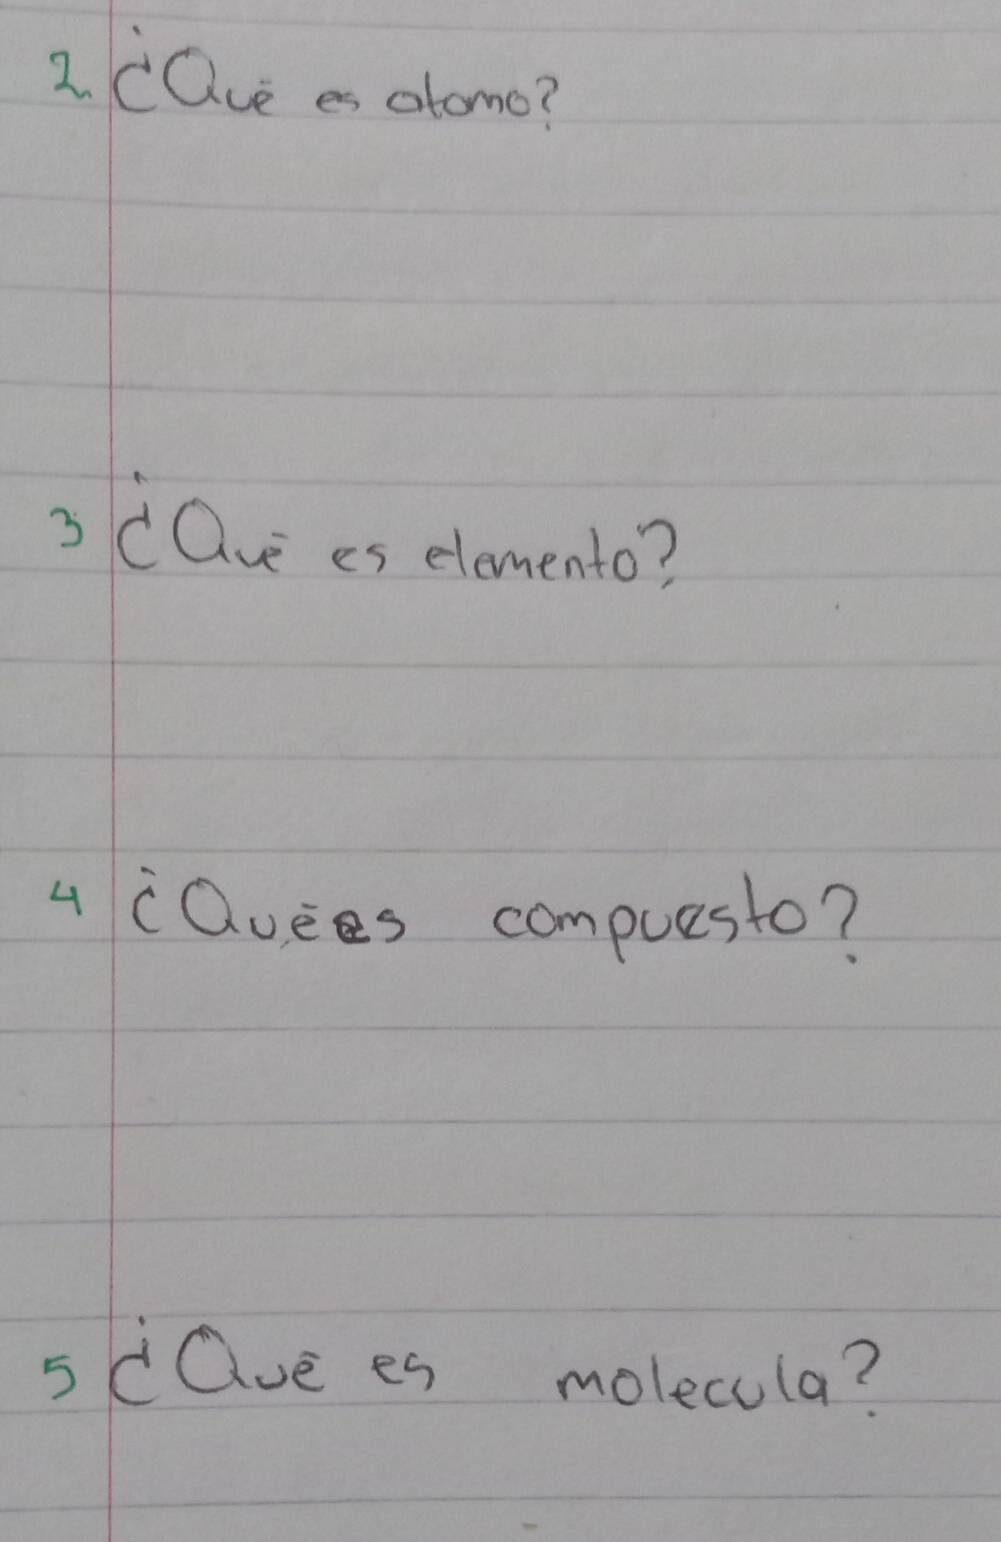 2. ¿Qué es atomo?
3 ¿Qué es elemento?
4 ¿Qué es compuesto?
5 ¿Qué es molecula?